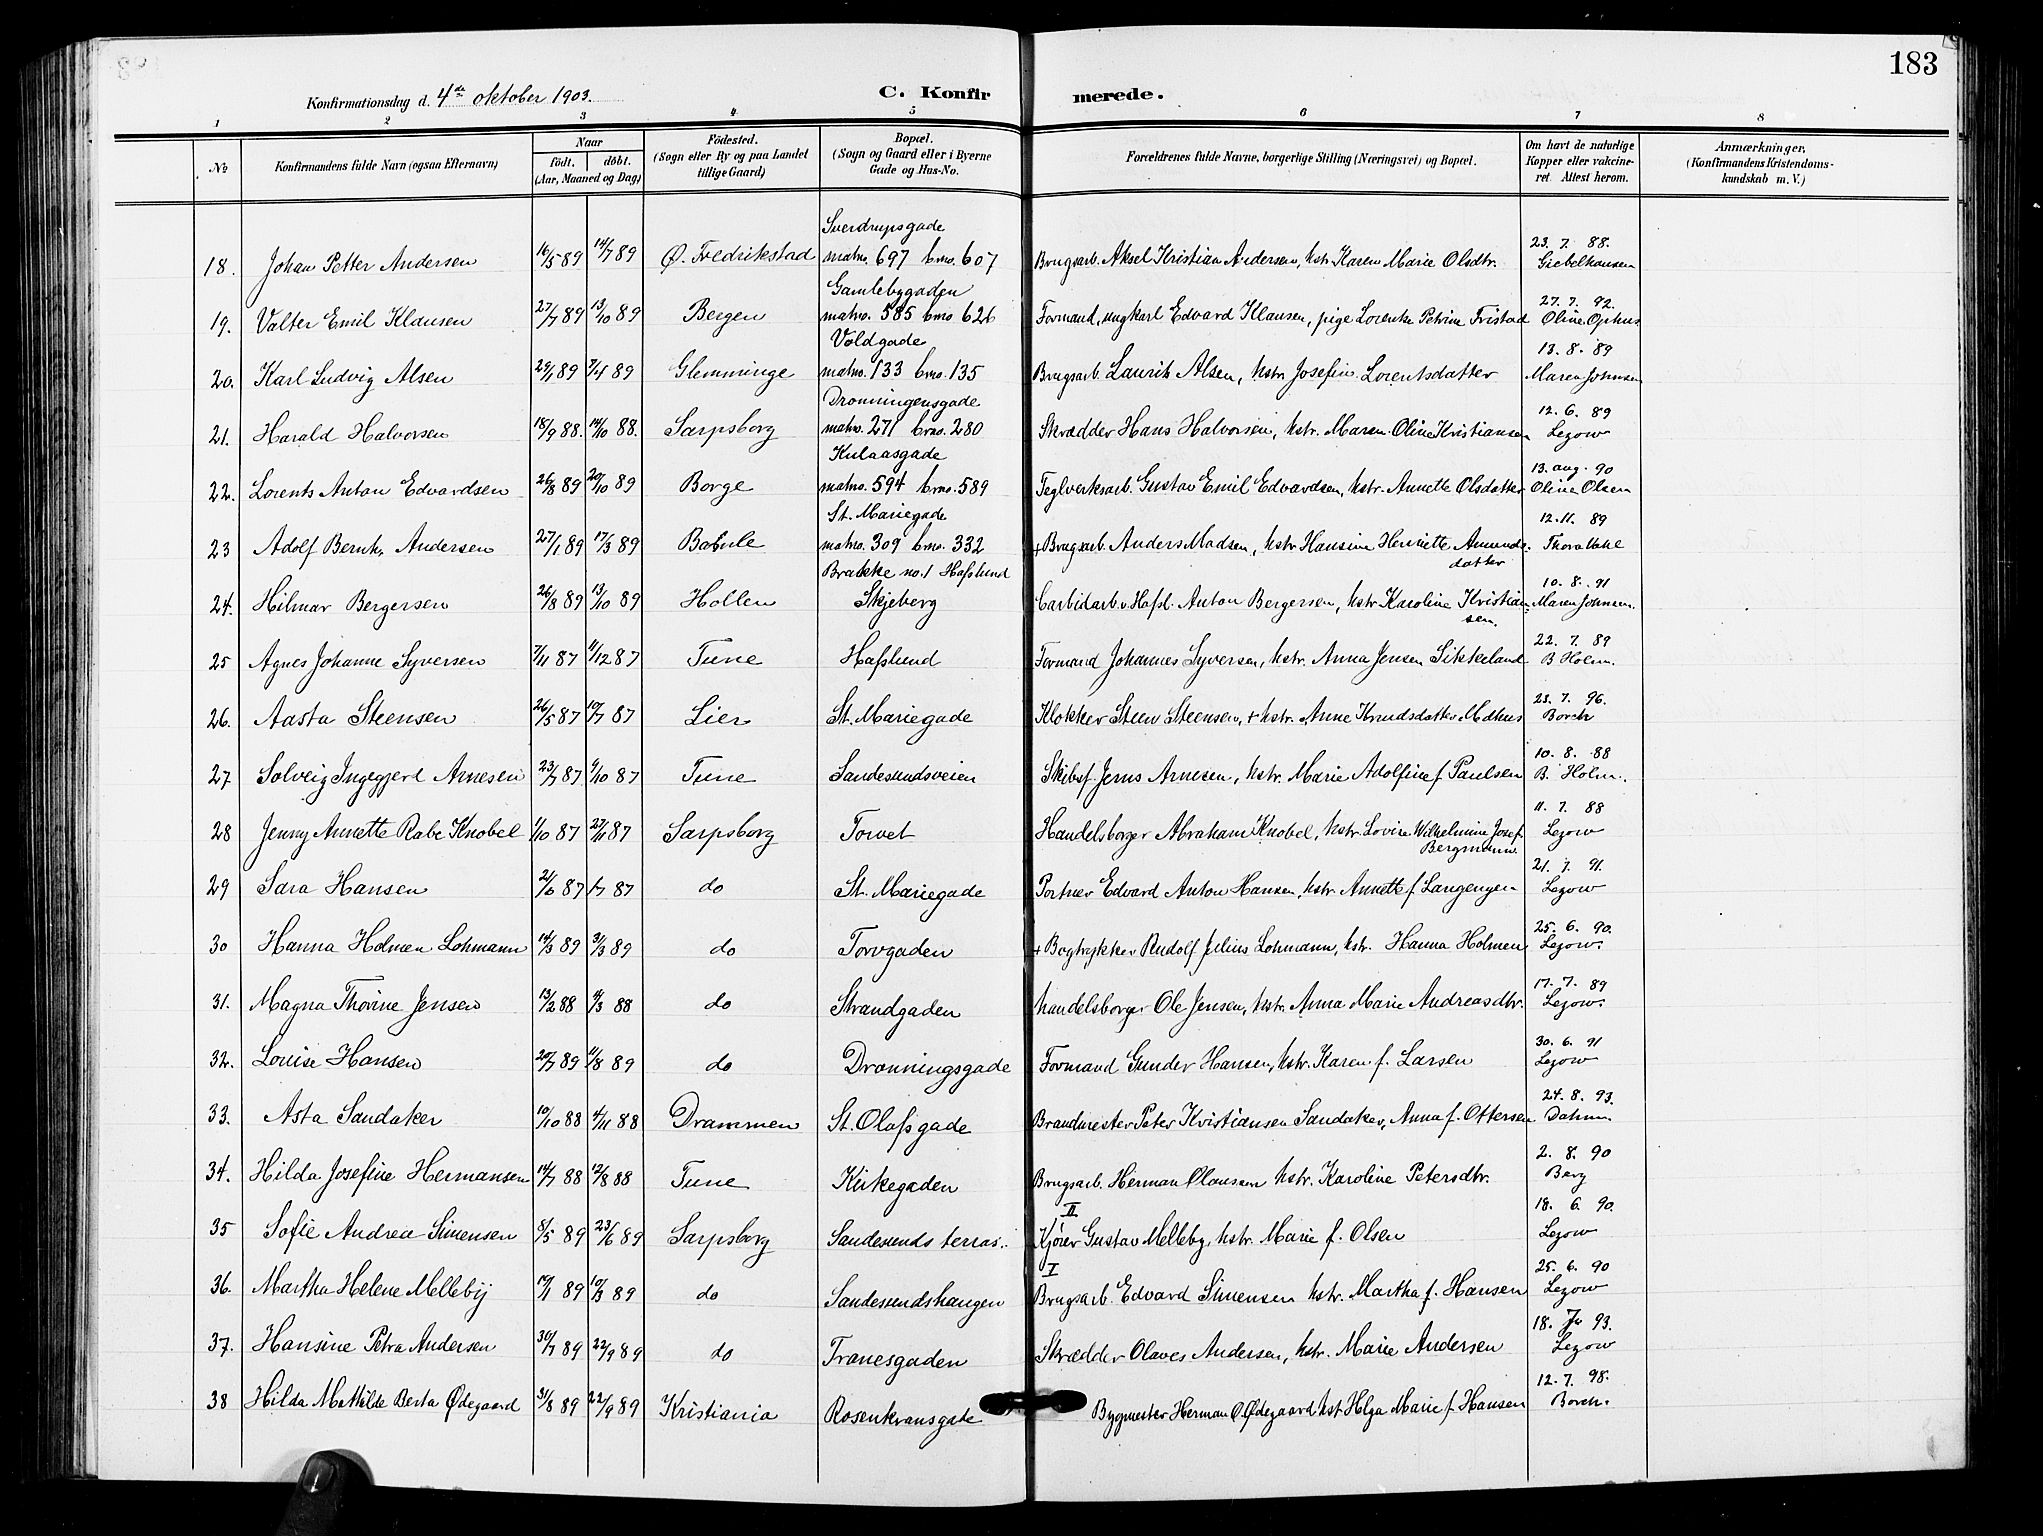 183
Konfirmationsdag d. 4de oktober 1903. C. Konfir merede.
1 2 3 4 5 6 7 8
No Konfirmandens fulde Navn (ogsaa Efternavn) Naar født. døbt. (Aar, Maaned og Dag) Fødested. (Sogn eller By og paa Landet tillige Gaard) Bopæl. (Sogn og Gaard eller i Byerne Gade og Hus-No. Forældrenes fulde Navne, borgerlige Stilling (Næringsvei) og Bopæl. Om havt de naturlige Kopper eller vakcineret. Attest herom. Anmærkninger, (Konfirmandens Kristendomskundskab m. V.)
Sverdrupsgade 23. 7. 88.
18. Johan Petter Andersen 16/5 89 14/7 89 Ø. Fredrikstad matno. 697 brno. 607 Brugsarb. Aksel Kristian Andersen, hstr. Karen Marie Olsdtr. Giebelhausen
Gamlebygaden 27. 7. 92.
19. Valter Emil Klausen 27/7 89 13/10 89 Bergen matno. 585 brno 626 Formand, ungkarl Edvard Klausen, pige Lorentze Petrine Fristad Oline Ophus
Voldgade 13. 8. 89
20. Karl Ludvig Alsen 29/1 89 7/4 89 Glemminge matno. 133 brno. 135 Brugsarb. Laurits Alsen, hstr. Josefine Lorentsdatter Maren Johnsen
Dronningensgade 12. 6. 89
21. Harald Halvorsen 18/9 88. 14/10 88. Sarpsborg matno. 271 brno. 280 Skrædder Hans Halvorsen, hstr. Maren Oline Kristiansen Lezow
Kulaasgade 13. aug. 90
22. Lorents Anton Edvardsen 26/8 89 20/10 89 Borge matno. 594 brno. 589 Teglverksarb. Gustav Emil Edvardsen, hstr. Annette Olsdatter Oline Olsen
St. Mariegade 12. 11. 89
23 Adolf Bernh. Andersen 27/1 89 17/3 89 Bamle matno. 309 brno. 332 + Brugsarb. Anders Madsen, hstr. Hansine Henriette Amundsdatter Thora
Brakke no. 1 Hafslund 10. 8. 91
24. Hilmar Bergersen 26/8 89 13/10 89 Hollen Skjeberg Carbidarb. v. Hafsl. Anton Bergersen, hstr. Karoline Kristiansen. Maren Johnsen.
22. 7. 89
25 Agnes Johanne Syversen 7/11 87 4/12 87 Tune Hafslund Formand Johannes Syversen, hstr. Anna Jensen Sikkeland B Holm.
23. 7. 96.
26. Aasta Steensen 26/5 87 10/7 87 Lier St. Mariegade Klokker Steen Steensen, + hstr. Anne Knudsdatter Mdhus Borch
10. 8. 88
27 Solveig Ingegjerd Arnesen 23/7 87 9/10 87 Tune Sandesundsveien Skibsf. Jens Arnesen, hstr. Marie Adolfine f. Paulsen B. Holm.
11. 7. 88
28 Jenny Annette Rabe Knobel 1/10 87 27/11 87 Sarpsborg Torvet Handelsborger Abraham Knobel, hstr. Lovise Wilhelmine Josef. Bergmann Lezow
21. 7. 91.
29 Sara Hansen 21/6 87 1/7 87 do St. Mariegade Portner Edvard Anton Hansen, hstr. Annette f. Langengen Lezow
25. 6. 90.
30 Hanna Holmen Lohmann 14/3 89 31/3 89 do Torvgaden + Bogtrykker Rudolf Julius Lohmann, hstr. Hanna Holmen Lezow.
17. 7. 89
31. Magna Thorine Jensen 13/2 88 11/3 88 do Strandgaden handelsborger Ole Jensen, hstr. Anna Marie Andreasdtr. Lezow.
30. 6. 91
32. Louise Hansen 20/7 89 11/8 89 do Dronningsgade Formand Gunder Hansen, hstr. Karen f. Larsen Lezow
24. 8. 93.
33. Asta Sandaker 10/10 88 4/11 88 Drammen St. Olafsgade Brandmester Peter Kristiansen Sandaker, Anna f. Ottersen Dahm
2. 8. 90
34. Hilda Josefine Hermansen 14/7 88 12/8 88 Tune Kirkegaden Brugsarb. Herman Clausen hstr. Karoline Petersdtr. Berg
II 18. 6. 90.
35 Sofie Andrea Simensen 8/5 89 23/6 89 Sarpsborg Sandesunds terras. Kjører Gustav Melleby, hstr. Marie f. Olsen Lezow
I 25. 6. 90
36. Martha Helene Melleby 19/1 89 10/3 89 do Sandesundshaugen Brugsarb. Edvard Simensen hstr. Martha f. Hansen Lezow
18. 93.
37. Hansine Petra Andersen 30/7 89 22/9 89 do Tranesgaden Skrædder Olaves Andersen, hstr. Marie Andersen Lezow
12. 7. 98.
38 Hilda Mathilde Berta Ødegaard 31/8 89 22/9 89 Kristiania Rosenkransgade Bygmester Herman O. Ødegaard hst. Helga Marie f. Hansen Borch.